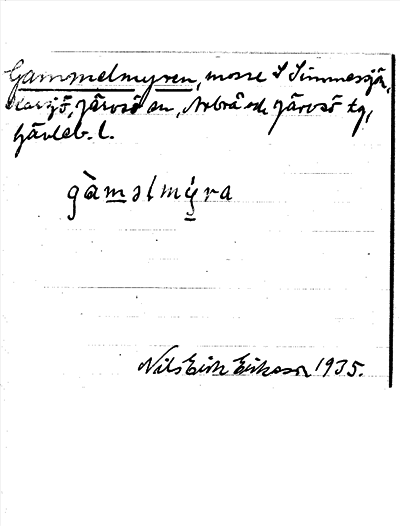 Gammelmyren, mosse S Simmessjön,
Karsjö, Järvsö sn, Arbrå o Järvsö tg,
Gävleb. l.
gàmǝlmýra
Nils Erik Eriksson 1935.